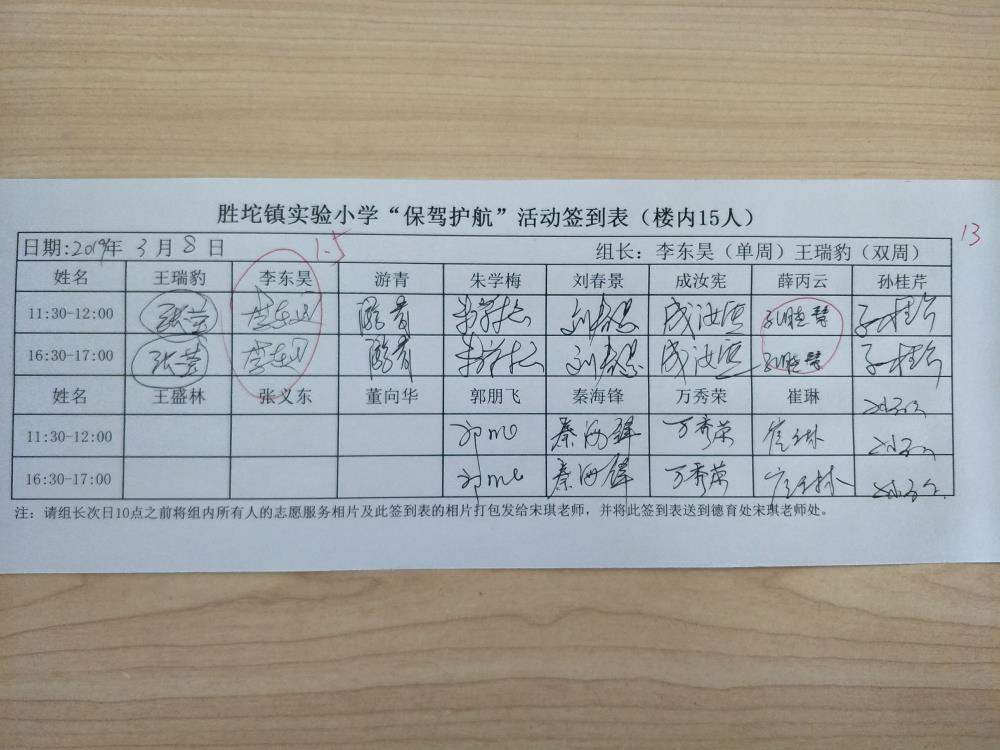 胜坨镇实验小学“保驾护航”活动签到表（楼内15人）
13
日期:2019年 3月8日 1.5 组长：李东昊（单周）王瑞豹（双周）
姓名 王瑞豹 李东昊 游青 朱学梅 刘春景 成汝宪 薛丙云 孙桂芹
11:30-12:00 张莹 李东昊 游青 朱学梅 刘春景 成汝宪 孔晓慧 孙桂芹
16:30-17:00 张莹 李东昊 游青 朱学梅 刘春景 成汝宪 孔晓慧 孙桂芹
姓名 王盛林 张义东 董向华 郭朋飞 秦海锋 万秀荣 崔琳
11:30-12:00 秦海锋 万秀荣 崔琳
16:30-17:00 秦海锋 万秀荣 崔琳
注：请组长次日10点之前将组内所有人的志愿服务相片及此签到表的相片打包发给宋琪老师，并将此签到表送到德育处宋琪老师处。